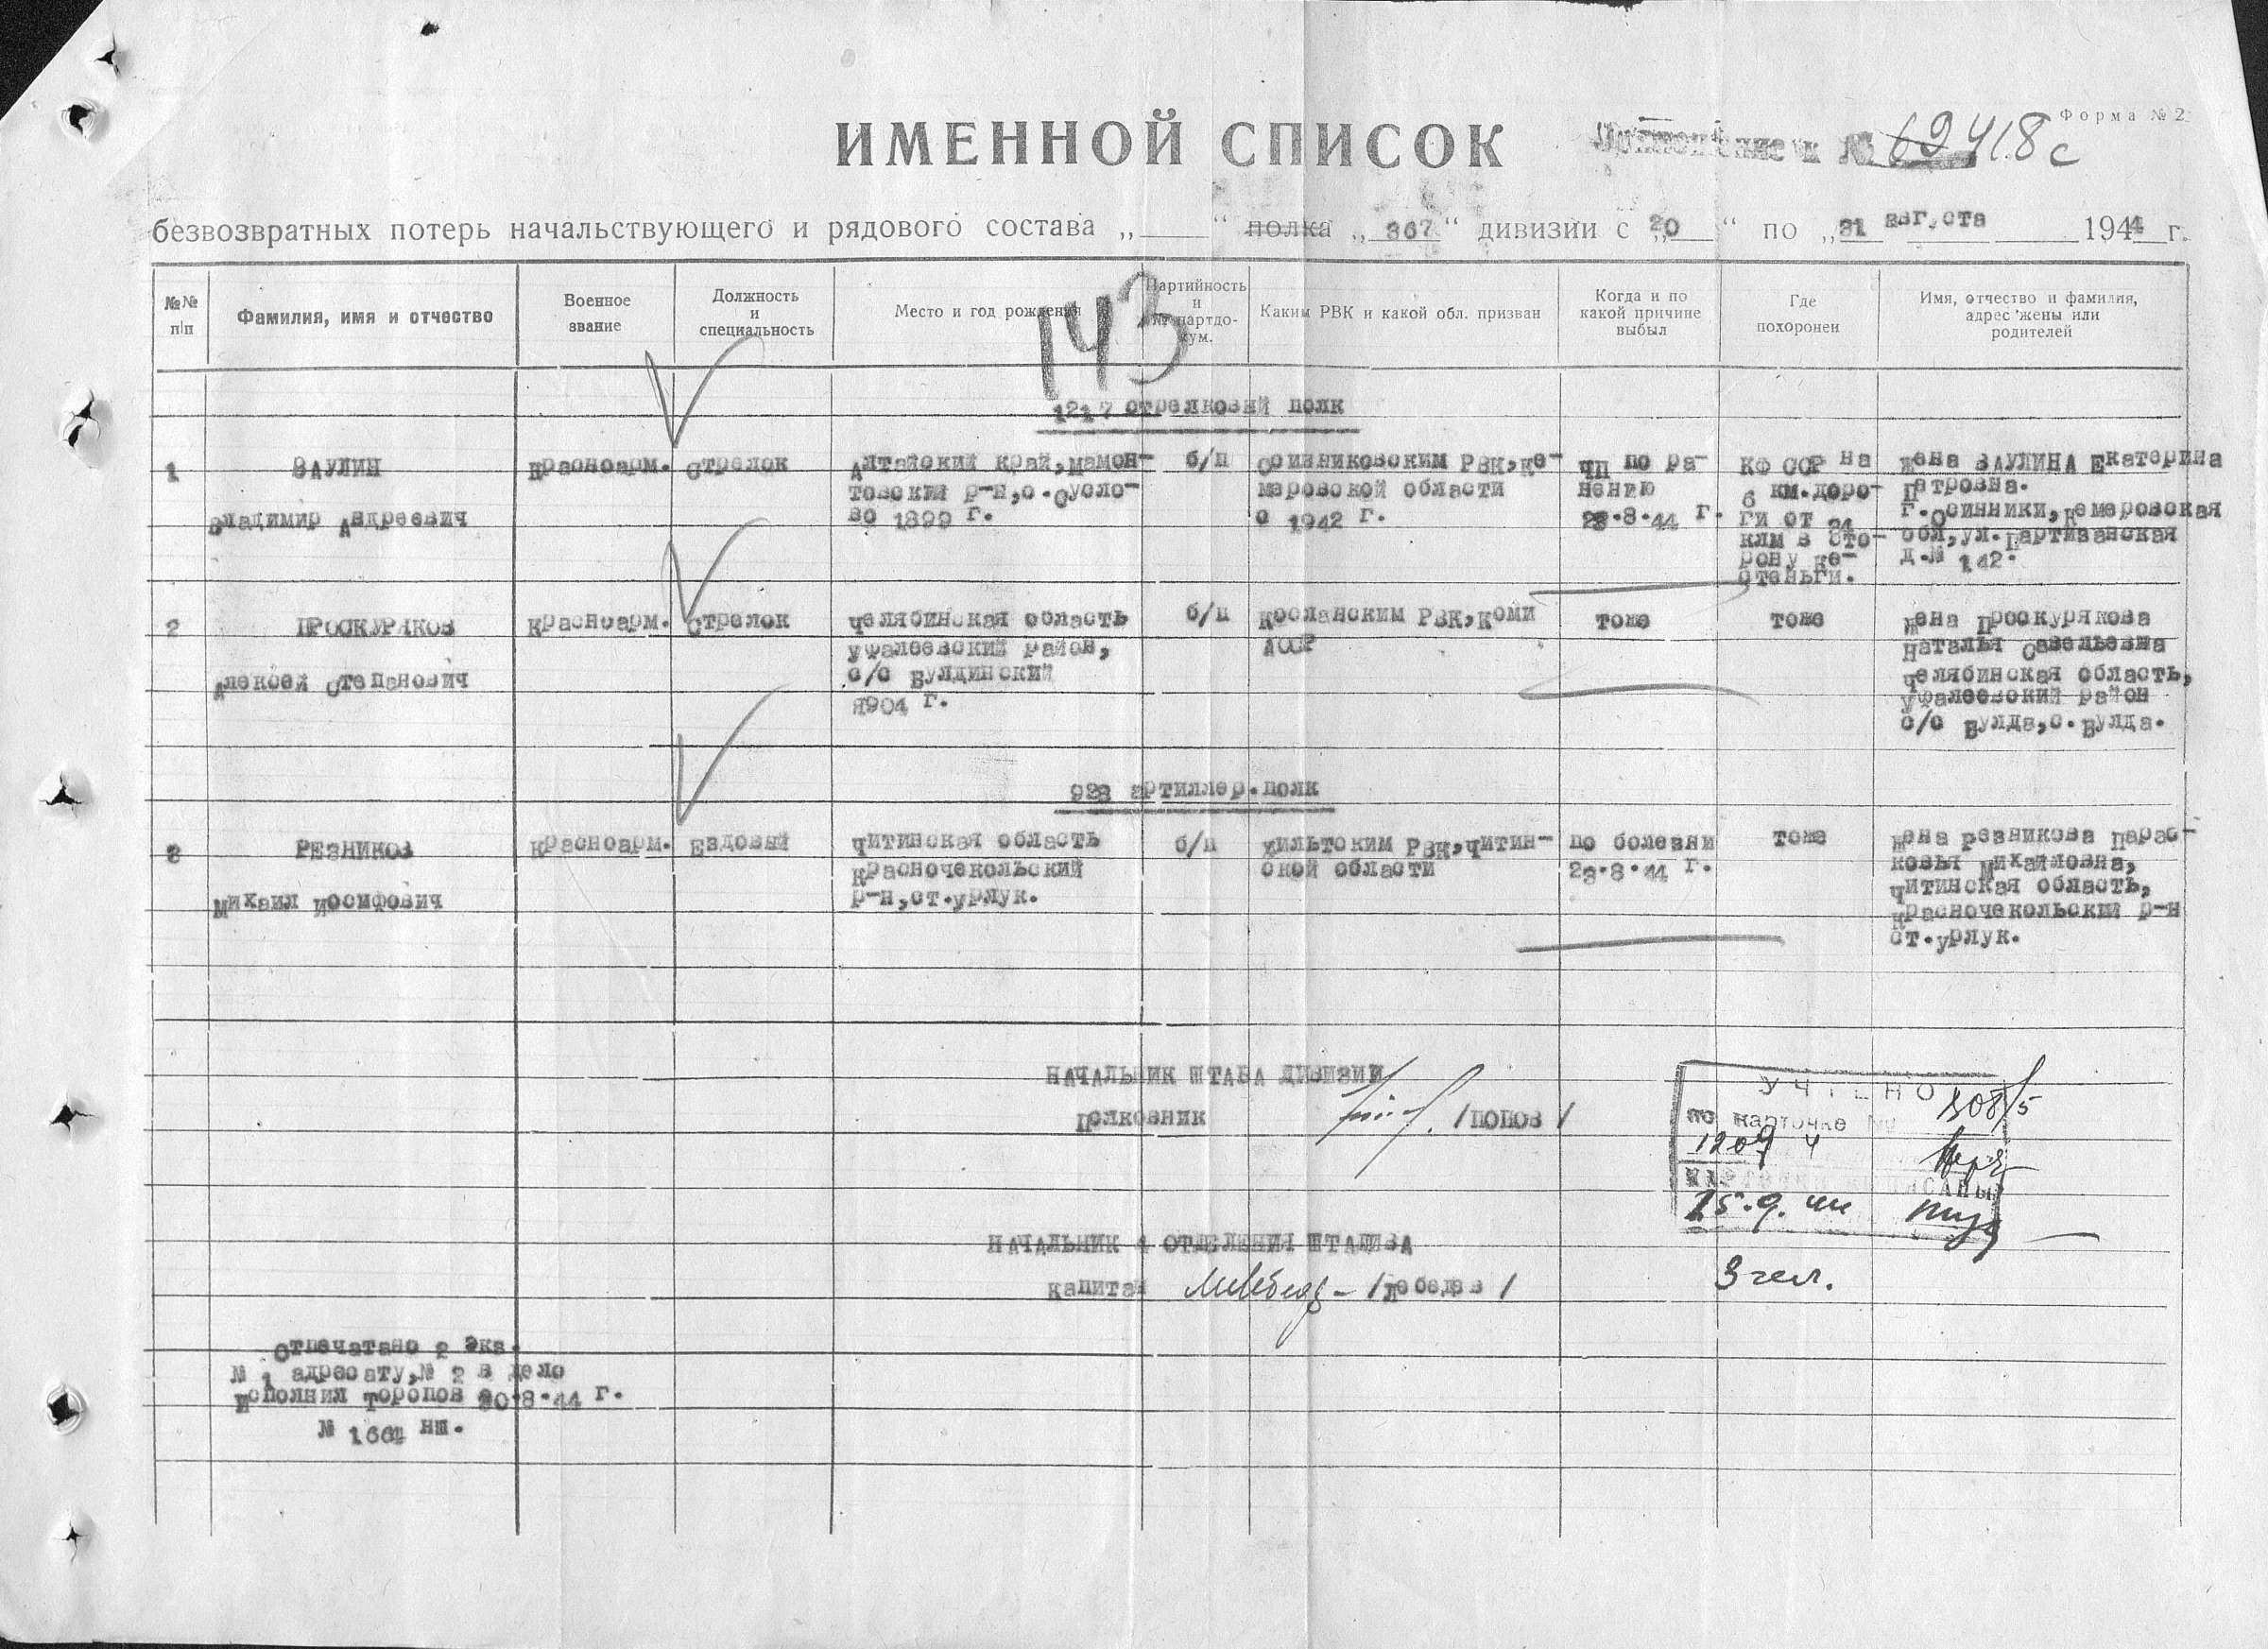 Форма № 2
ИМЕННОЙ СПИСОК
Приложение к № 62418с
безвозвратных потерь начальствующего и рядового состава „ “ полка „ 367 “ дивизии с „20 “ по „31 августа 1944 г.
№№ п/п
Фамилия, имя и отчество
Военное звание
Должность и специальность
Место и год рождения
Партийность и № партдокум.
Каким РВК и какой обл. призван
Когда и по какой причине выбыл
Где похоронен
Имя, отчество и фамилия, адрес жены или родителей
143
1217 стрелковый полк
1
ВАУЛИН
Владимир Андреевич
Красноарм.
Стрелок
Алтайский край, мамон-
товский р-н, с. Сусло-
во 1899 г.
б/п
Осинниковским РВК, Ке-
меровской области
с 1942 г.
ЧП по ра-
нению
23.8.44 г.
КФ ССР на
6 км. доро-
ги от 24
клм в сто-
рону Ке-
стеньги.
Жена ВАУЛИНА Екатерина
Петровна.
г. Осинники, Кемеровская
обл, ул. Партизанская
д.№ 142.
2
ПРОСКУРЯКОВ
Алексей Степанович
Красноарм.
Стрелок
Челябинская область
уфалеевский район,
с/с Булдинский
1904 г.
б/п
Косланским РВК, Коми
АССР
тоже
тоже
Жена Проскурякова
Наталья Савельевна
Челябинская область,
Уфалеевский район
с/с Булда, с. Булда.
928 артиллер. полк
3
РЕЗНИКОВ
Михаил Иосифович
Красноарм.
Ездовый
Читинская область
Красночекольский
р-н, ст. урлук.
б/п
Хильтоким РВК, Читин-
ской области
По болезни
23.8.44 г.
тоже
Жена Резникова Парас-
ковья Михайловна,
Читинская область,
Красночекольский р-н
ст. урлук.
НАЧАЛЬНИК ШТАБА ДИВИЗИИ
Полковник /ПОПОВ/
УЧТЕНО
по карточке №
КАРТОЧКИ ВЫПИСАНЫ
НАЧАЛЬНИК 4 ОТДЕЛЕНИЯ ШТАДИВА
капитан /Лебедев/
3 чел.
Отпечатано 2 экз.
№ 1 адресату, № 2 в дело
Исполнил Торопов 30.8.44 г.
№ 1661 нш.